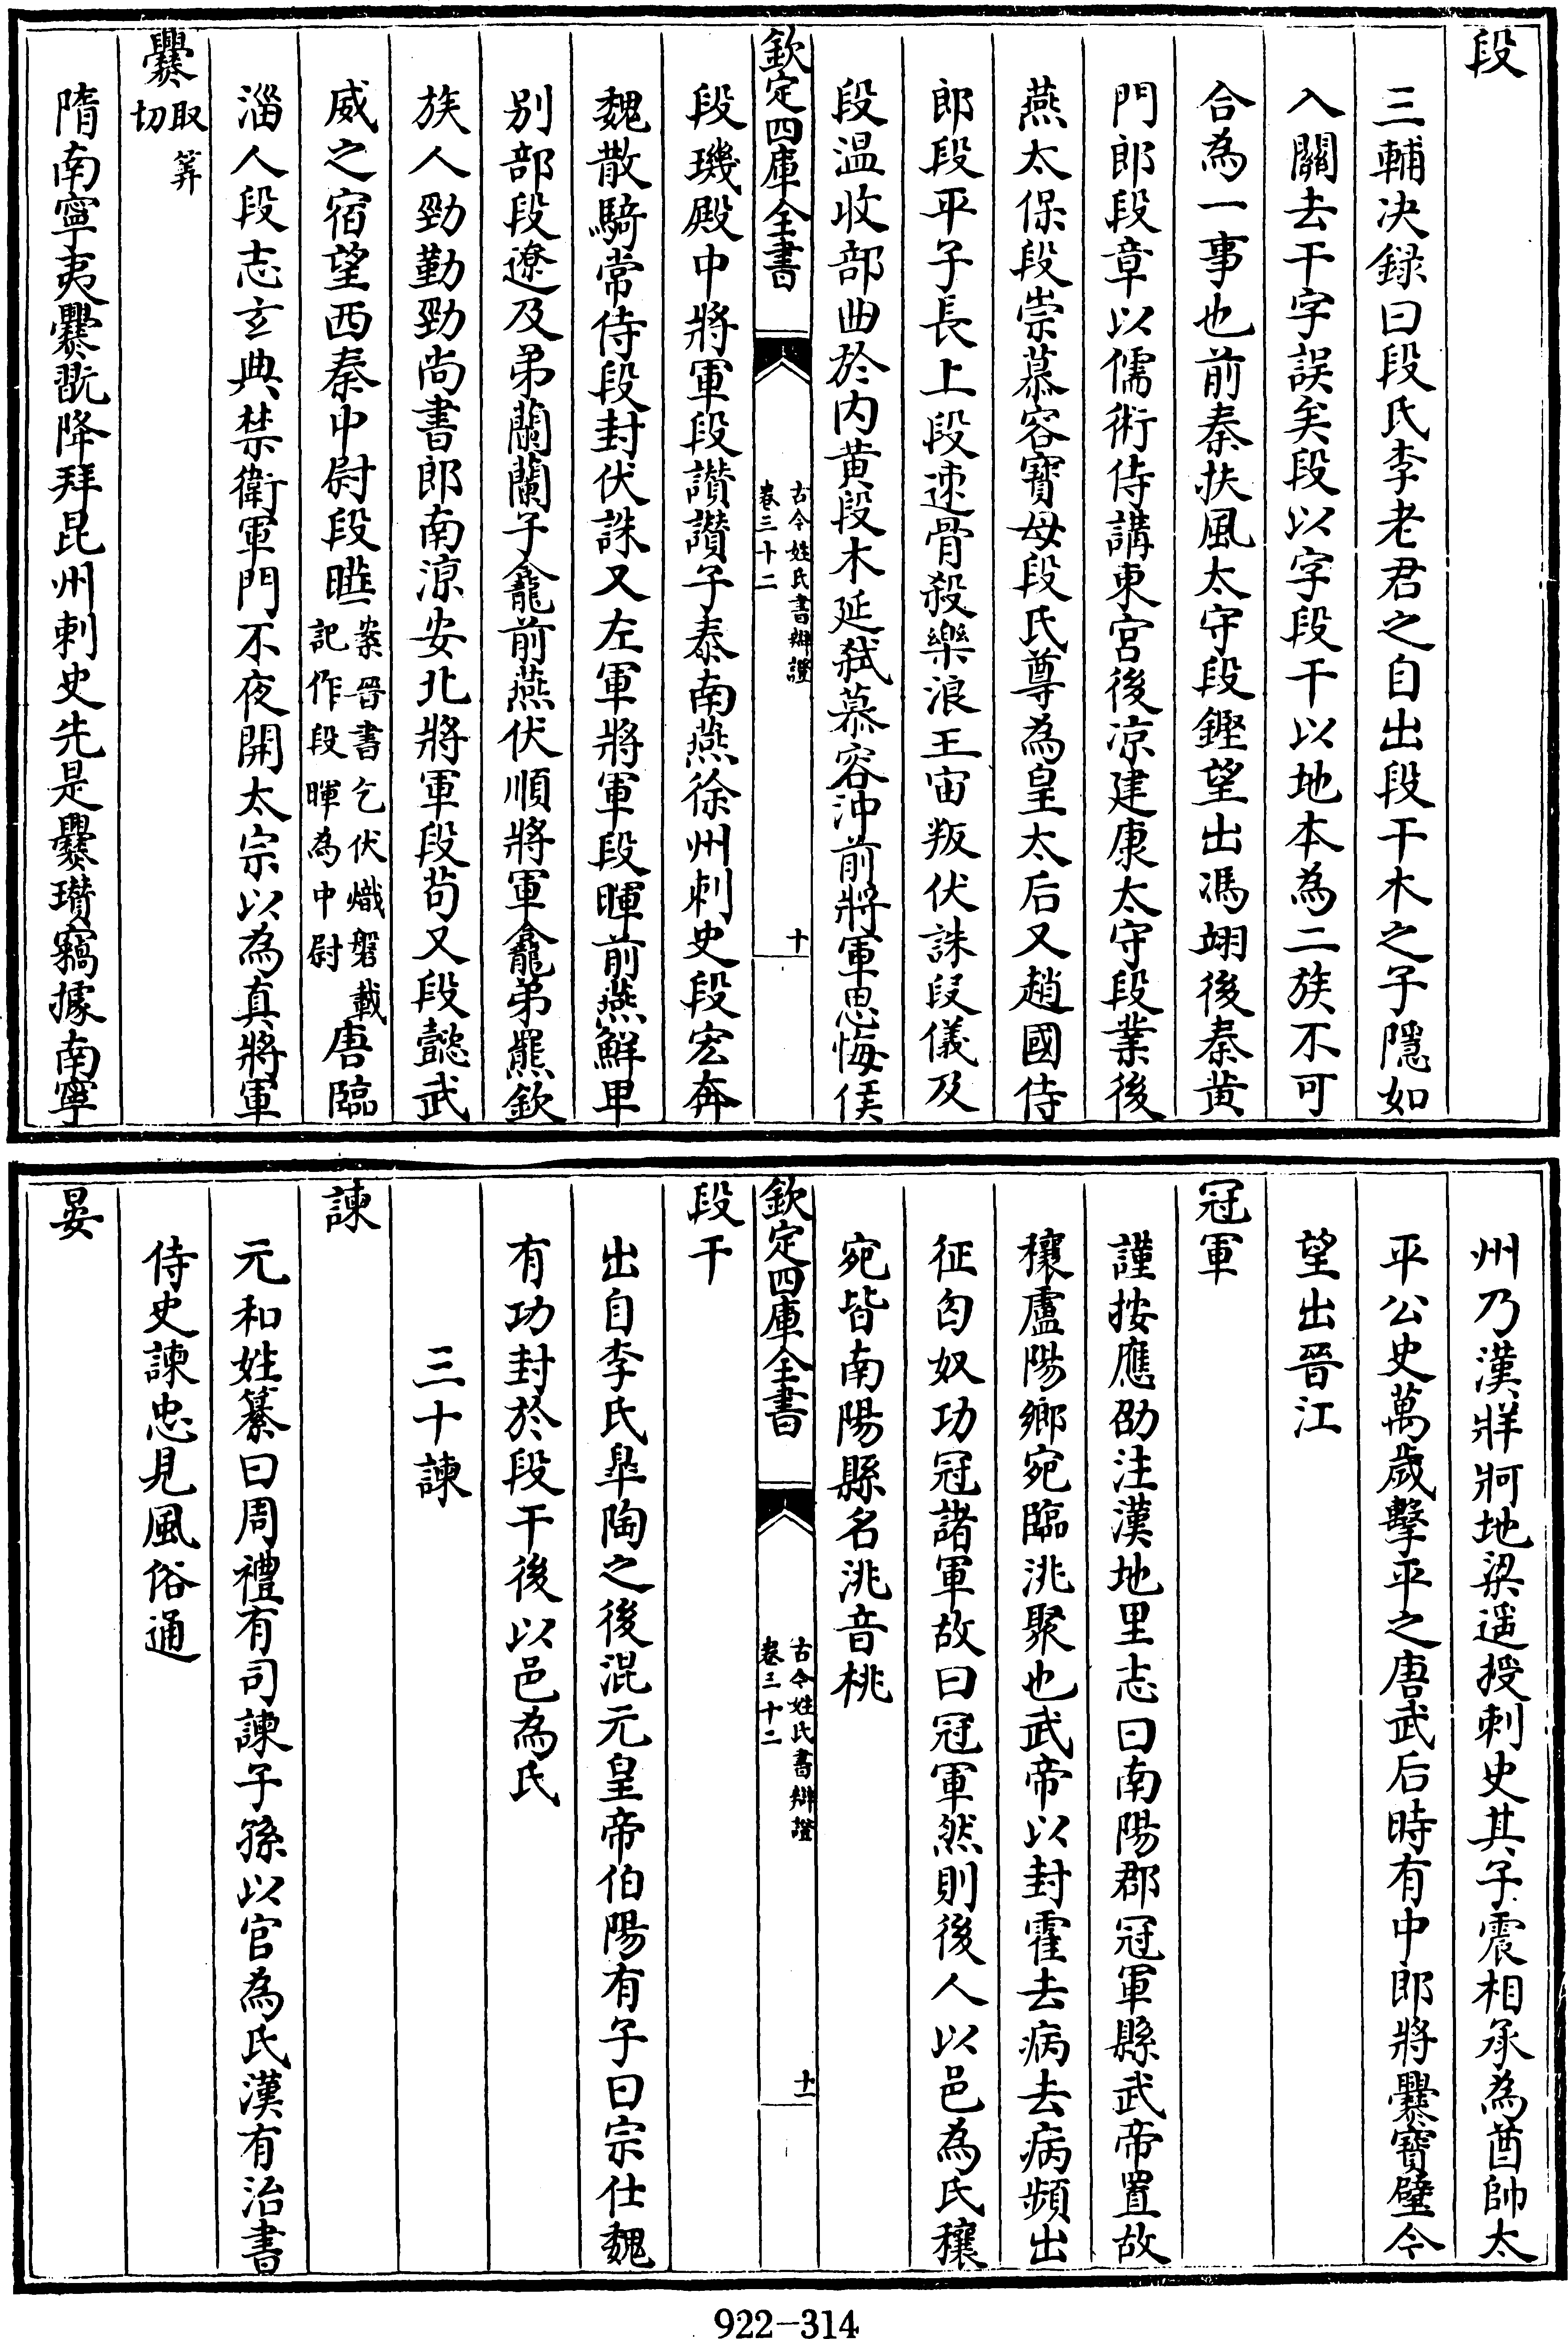 段
三輔决録曰段氏李老君之自出段干木之子隱如
入關去干字誤矣段以字段干以地本為二族不可
合為一事也前秦扶風太守段鏗望出馮翊後秦黄
門郎段章以儒術侍講東宫後凉建康太守段業後
燕太保段崇慕容寶母段氏尊為皇太后又趙國侍
郎段平子長上段速骨殺樂浪王宙叛伏誅段儀及
段温收部曲於内黄段木延弑慕容沖前將軍思悔侯
欽定四庫全書
古今姓氏書辯證
卷三十二
十
段璣殿中將軍段讃讃子泰南燕徐州刺史段宏奔
魏散騎常侍段封伏誅又左軍將軍段暉前燕鮮卑
别部段遼及弟蘭蘭子龕前燕伏順將軍龕弟羆欽
族人勁勤勁尚書郎南凉安北將軍段苟又段懿武
威之宿望西秦中尉段𣈶案晉書乞伏熾磐載
記作段暉為中尉唐臨
淄人段志玄典禁衛軍門不夜開太宗以為真將軍
爨取筭
切
隋南寧夷爨翫降拜昆州刺史先是爨瓚竊據南寧
州乃漢牂牁地梁遥授刺史其子震相承為酋帥太
平公史萬歲擊平之唐武后時有中郎將爨寶璧今
望出晉江
冠軍
謹按應劭注漢地里志曰南陽郡冠軍縣武帝置故
穰盧陽鄉宛臨洮聚也武帝以封霍去病去病頻出
征匈奴功冠諸軍故曰冠軍然則後人以邑為氏穰
宛皆南陽縣名洮音桃
欽定四庫全書
古今姓氏書辯證
卷三十二
十一
段干
出自李氏臯陶之後混元皇帝伯陽有子曰宗仕魏
有功封於段干後以邑為氏
三十諫
諫
元和姓纂曰周禮有司諫子孫以官為氏漢有治書
侍史諫忠見風俗通
晏
922-314